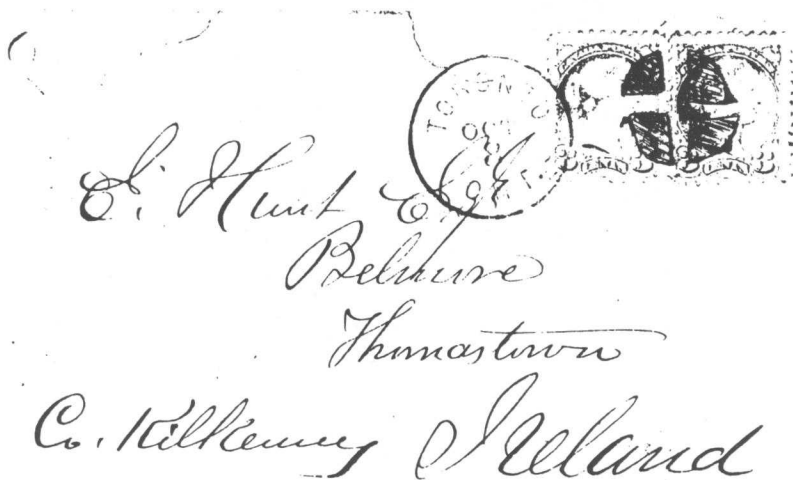 TORONTO
ONT.
3 CENTS 3
3 CENTS 3
E. Hunt Esq
Belmore
Thomastown
Co. Kilkenny Ireland